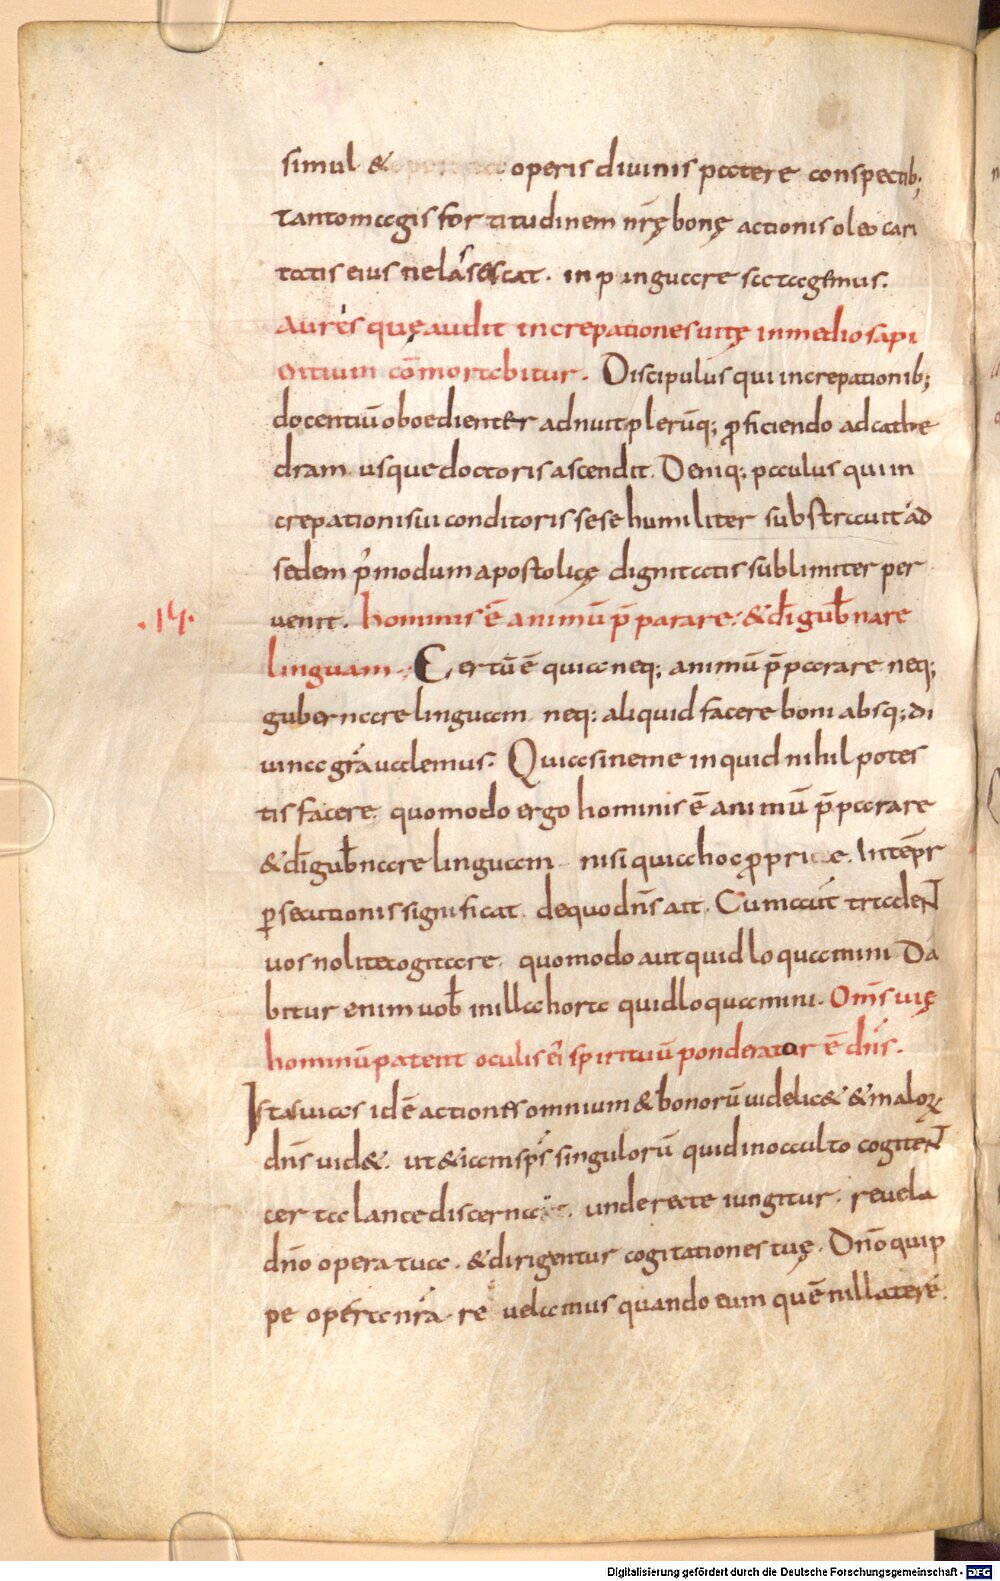 simul & operis diuinis patere conspectib;
Tanto magis fortitudinem nrę bonę actionis oleo cari
tatis eius nelassescat. inpinguare satagemus.
Auris quę audit increpationes uitę in medio sapi
entium cōmorabitur. Discipulus qui increpationib;
docentiū oboedienter adnuit plerūq; proficiendo ad cathe
dram usque doctoris ascendit. Deniq; paulus qui in
crepationi sui conditoris sese humiliter substrauit ad
sedem p'modum apostolicę dignitatis sublimiter per
uenit. hominis ē animū p̄parare. & dn̄i gub̄nare
linguam. Certū ē quia neq; animū p̄parare neq;
gubernare linguam neq; aliquid facere boni absq; di
uina gr̄a ualemus. Quia sine me inquid nihil potes
tis facere. quomodo ergo hominis ē animū p̄parare
& dn̄i gub̄nare linguam nisi quia hoc proprie. in tēpr
ꝑsecutionis significat. de quo dn̄s ait. Cum autē tradent
uos nolite cogitare. quomodo aut quid loquamini Da
bitur enim uob̄ in illa hora quid loquamini. Omīs uię
hominū patent oculis ei' spirituū ponderator ē dn̄s.
Istas uias id ē actiones omnium & bonorū uidelic& & maloꝝ
dn̄s uid&. ut & iam sp̄s singulorū quid in occulto cogitent
certa lance discernat. unde recte iungitur. reuela
dn̄o opera tua. & dirigentur cogitationes tuę. Dn̄o quip
pe opera nr̄a reuelamus quando eum quē nil latere
·14·